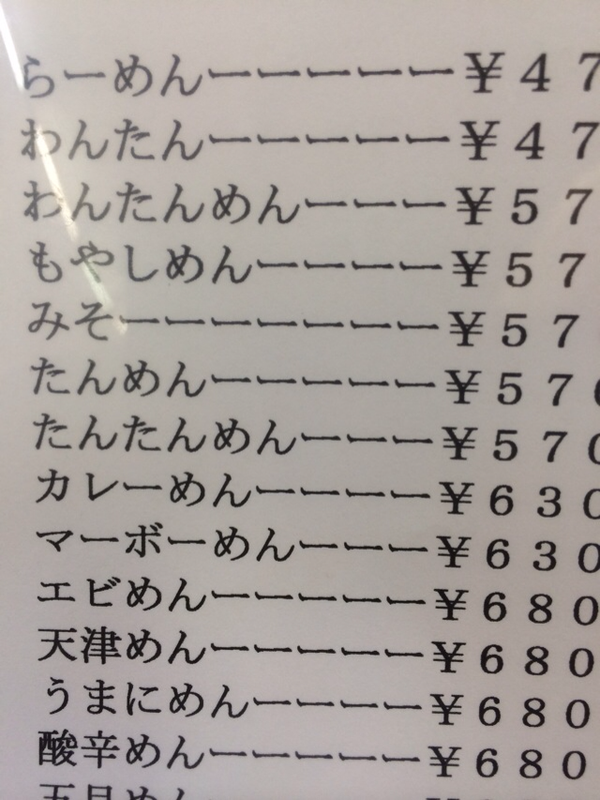 らーめんーーーーーー￥４７
わんたんーーーーーー￥４７
わんたんめんーーー￥５７
もやしめんーーーー￥５７
みそーーーーーーー￥５７
たんめんーーーーー￥５７０
たんたんめんーーー￥５７０
カレーめんーーーー￥６３０
マーボーめんーーー￥６３０
エビめんーーーーー￥６８０
天津めんーーーーー￥６８０
うまにめんーーーー￥６８０
酸辛めんーーーーー￥６８０